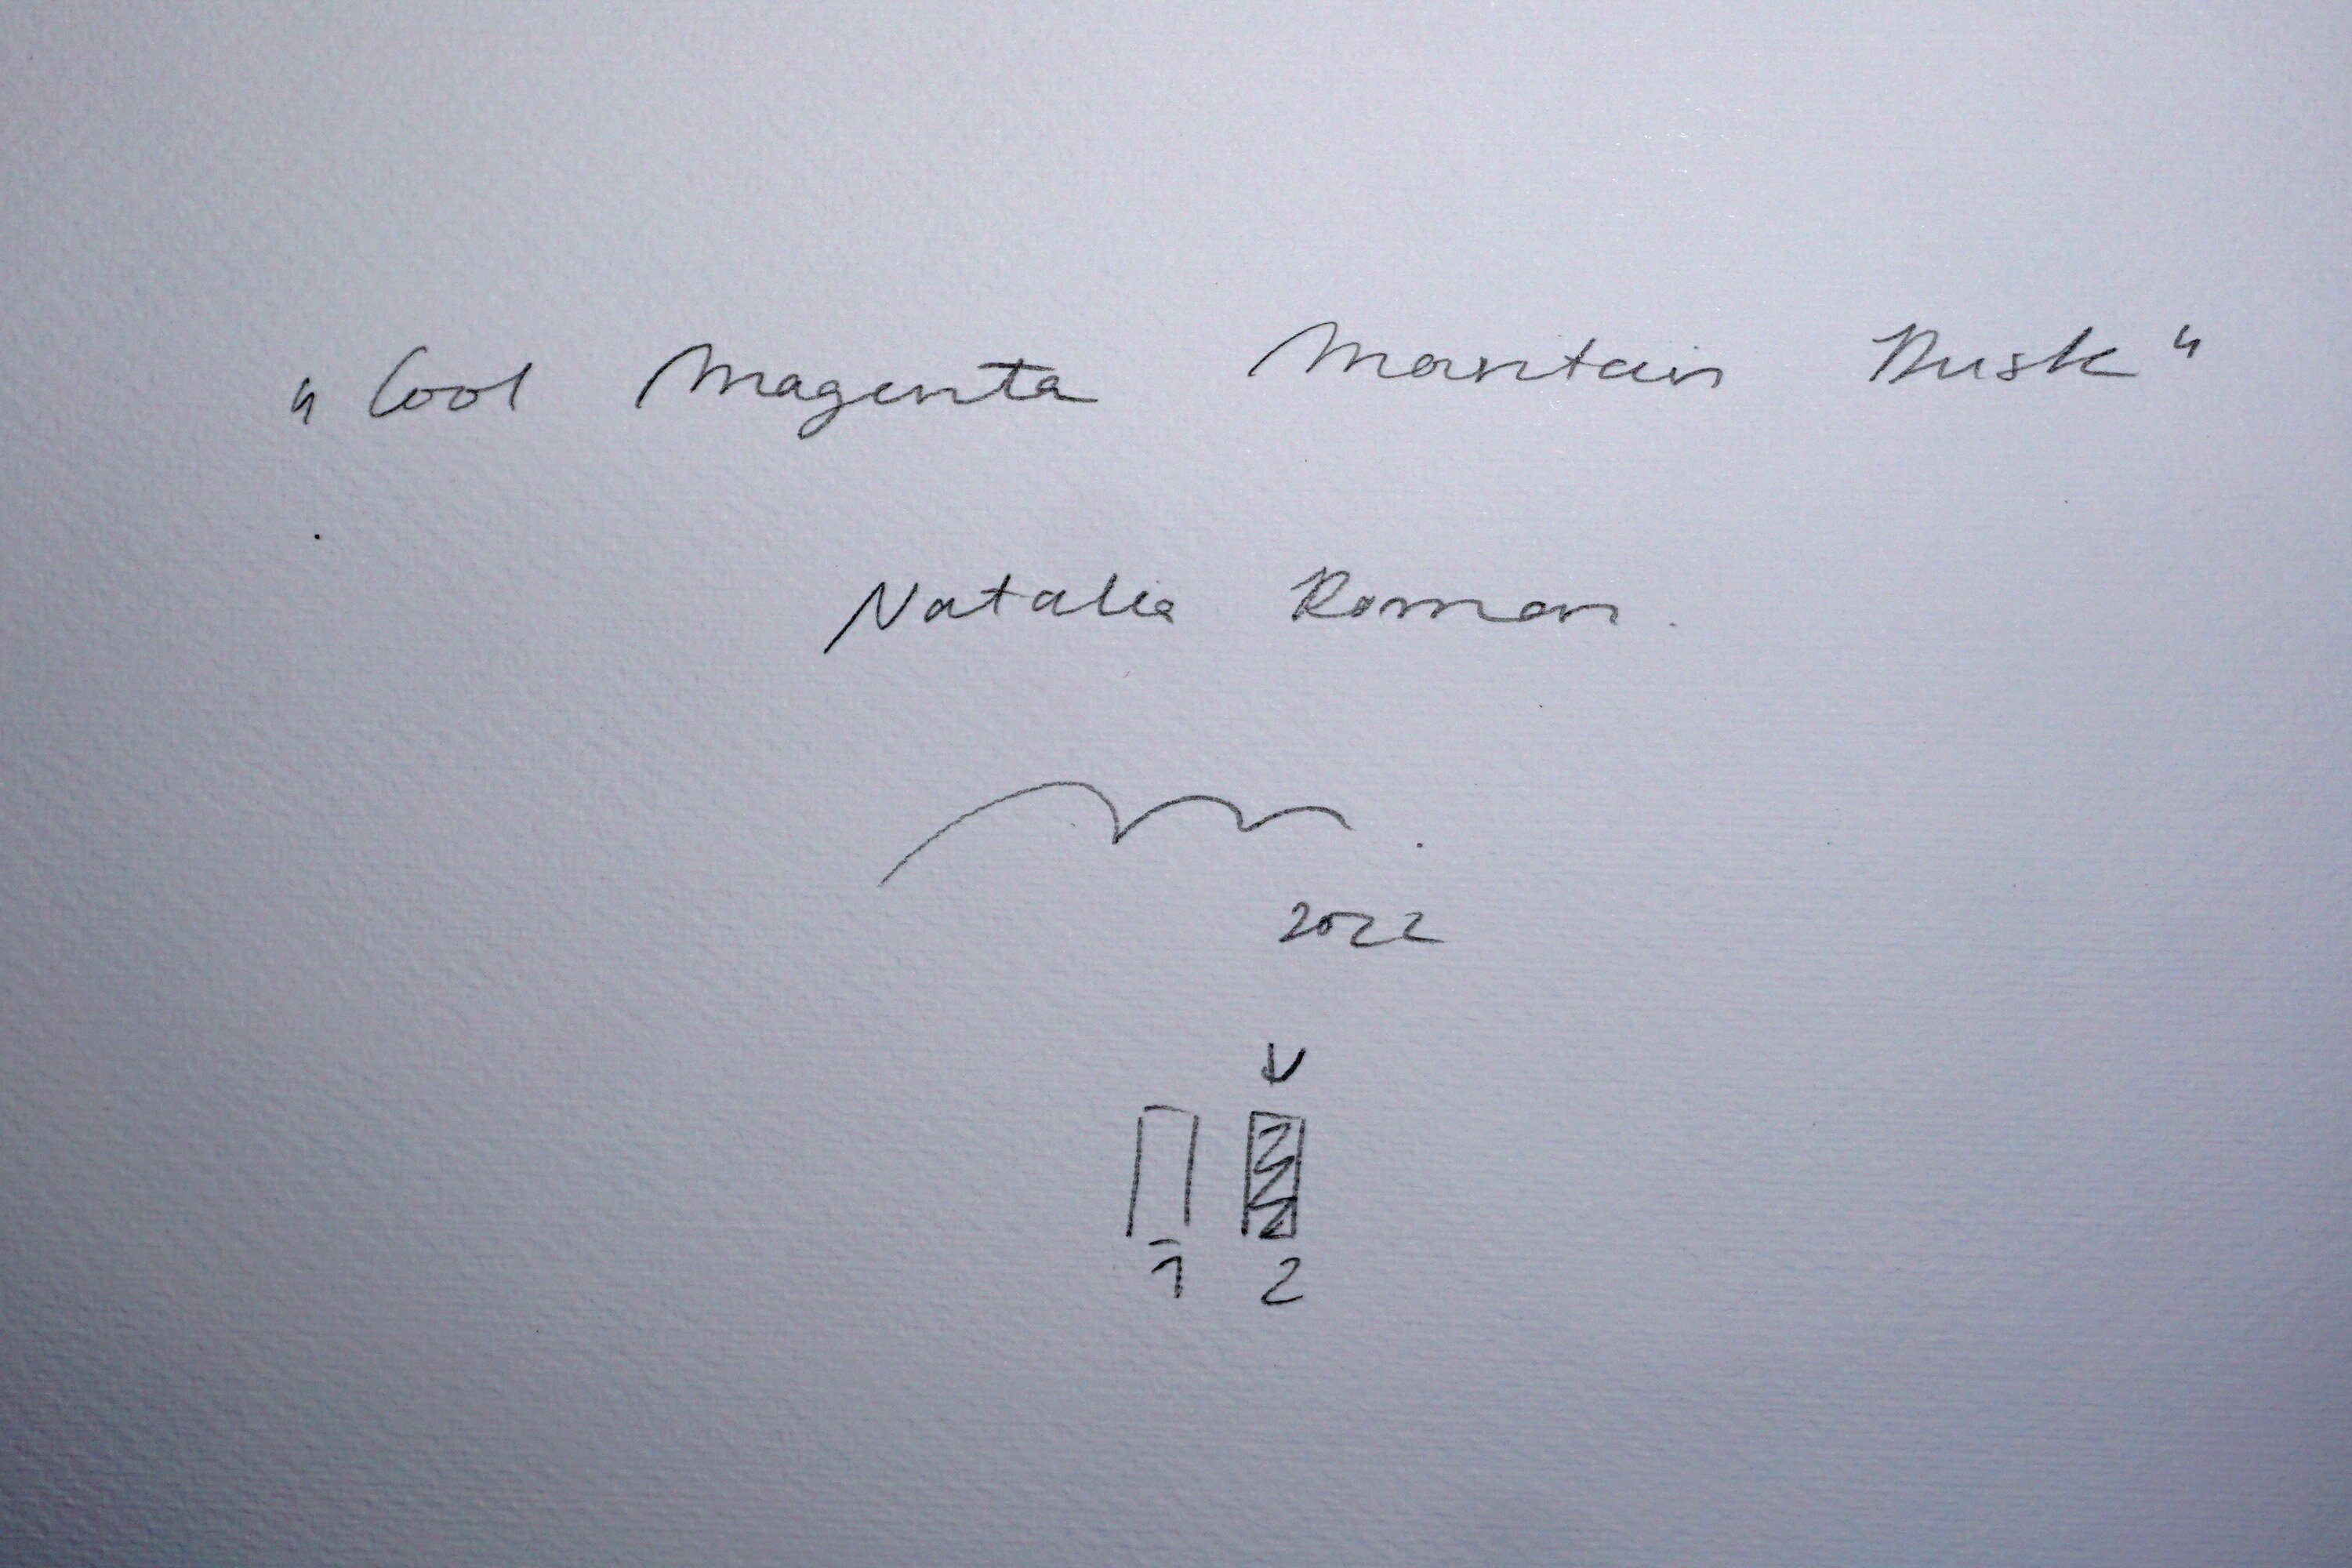 „Cool Magenta Mountain Dusk“
Natalia Roman
2022
1 2